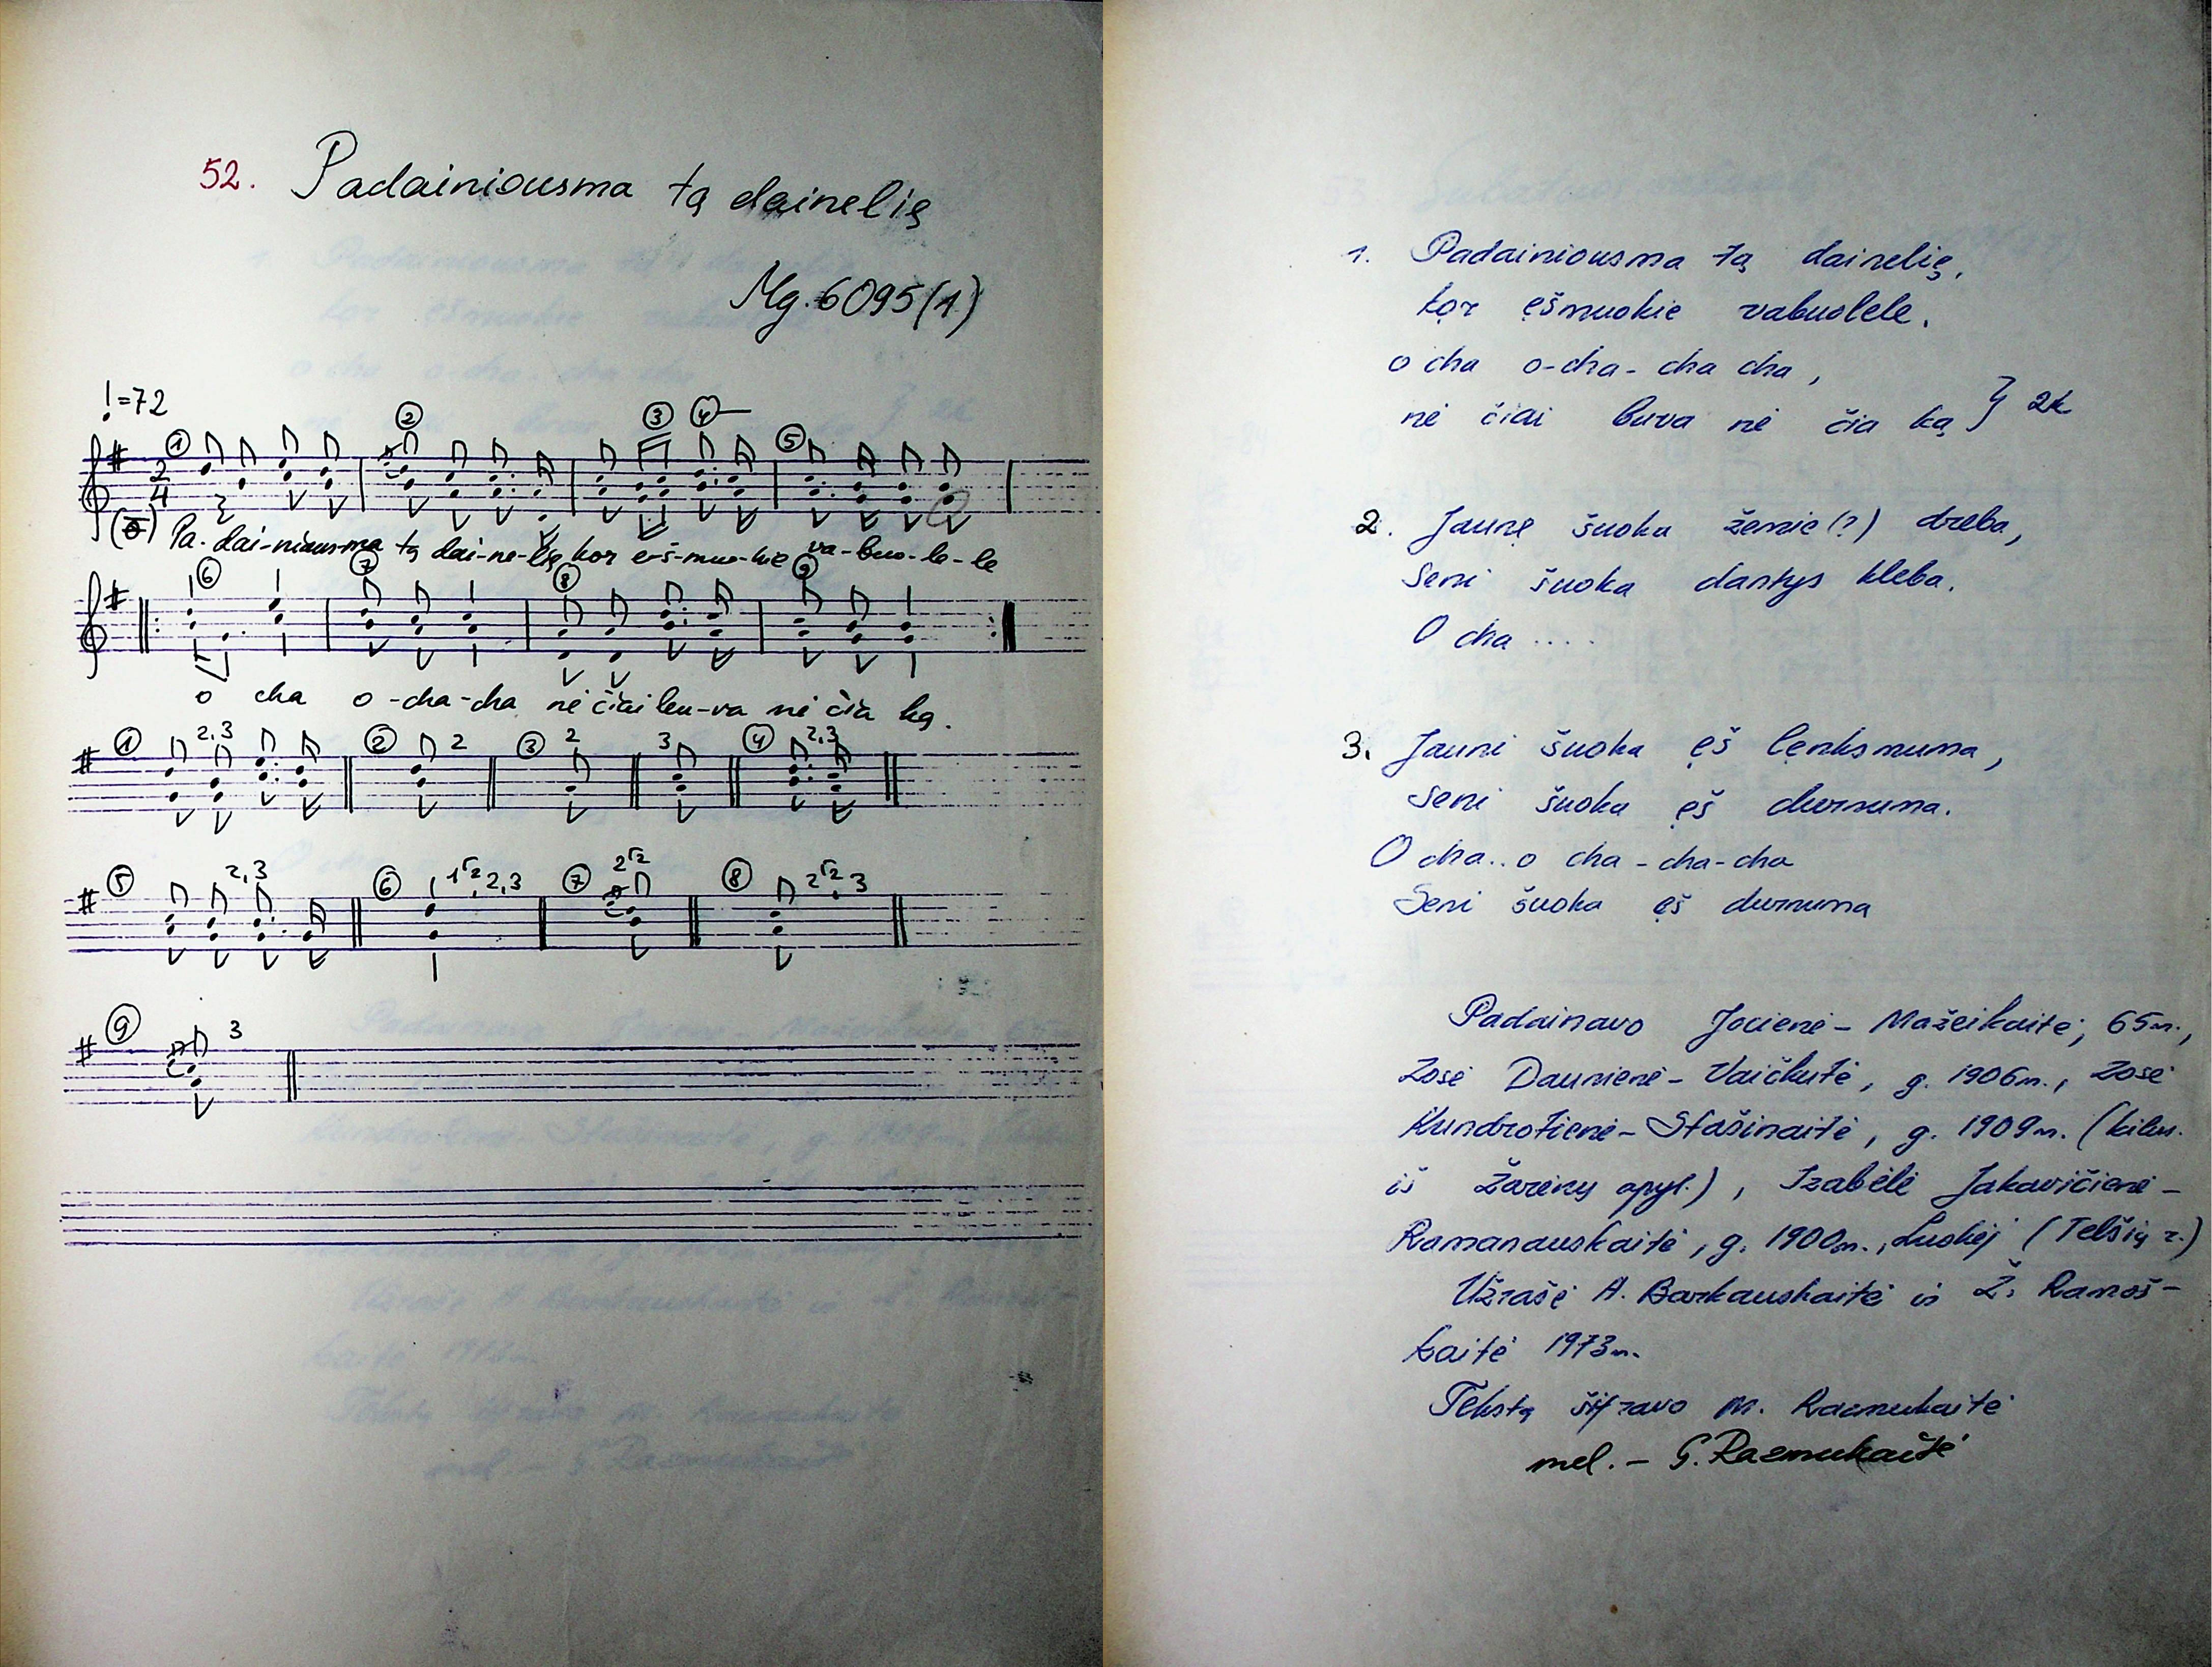 52. Padainiousma tą dainelię
Mg. 6095(1)
=72
① ② ③ ④ ⑤
2
4
Pa-dai-niaus-ma tą dai-ne-lię kor e-š-muo-kie va-buo-le-le
⑥ ⑦ ⑧ ⑨
o cha o-cha-cha nė čiai bu-va nė čia ką.
① 2,3 ② 2 ③ 2 3 ④ 2,3
⑤ 2,3 ⑥ 2,3 ⑦ ⑧ 3
⑨ 3
1. Padainiousma tą dainelię,
kor ęšmuokie vabuolele.
o cha o-cha-cha cha,
nė čiai buva nė čia ką } 2k
2. Jaunę šuoka žemie(?) dreba,
Seni šuoka dantys kleba.
O cha ....
3. Jauni šuoka ęš lęnksmuma,
Seni šuoka ęš durnuma.
O cha.. o cha-cha-cha
Seni šuoka ęš durnuma
Padainavo Jocienė-Mažeikaitė, 65m.,
Zosė Daunienė-Vaičkutė, g. 1906m., Zosė
Kundrotienė-Stašinaitė, g. 1909m. (kilus.
iš Žarėnų apyl.), Izabėlė Jakavičienė-
Ramanauskaitė, g. 1900m., Luokėj (Telšių r.)
Užrašė A. Barkauskaitė ir Ž. Ramoš-
kaitė 1973m.
Tekstą šifravo M. Razmukaitė
mel. - G. Razmukaitė